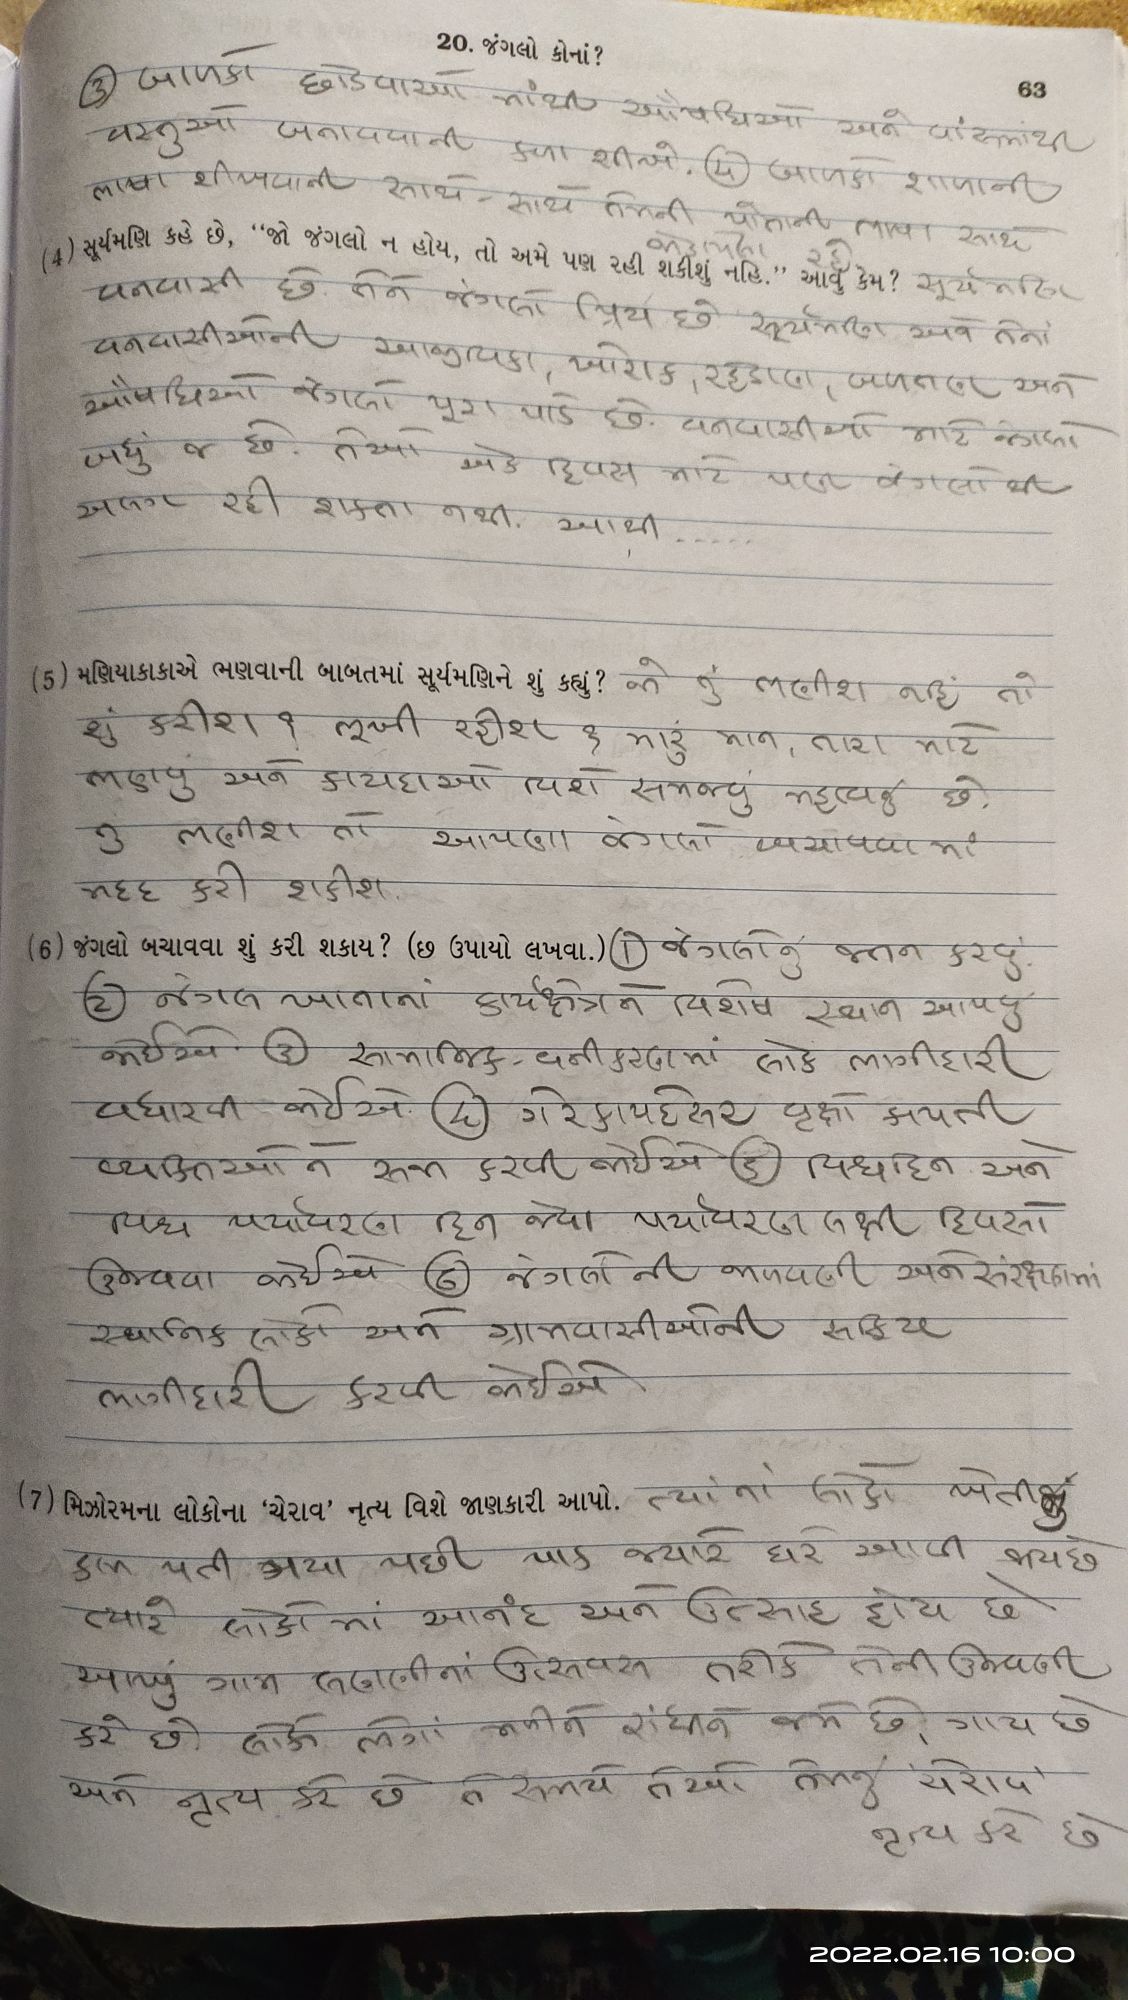 20. જંગલો કોનાં?
63
③ બાળકો છોડવાઓ માંથી ઔષધિઓ અને વાંસમાંથી
વસ્તુઓ બનાવવાની કળા શીખે. ④ બાળકો શાળાની
ભાષા શીખવાની સાથે-સાથે તેમની પોતાની ભાષા સાથે
જોડાયેલા રહે
(4) સૂર્યમણિ કહે છે, “જો જંગલો ન હોય, તો અમે પણ રહી શકીશું નહિ.” આવું કેમ? સૂર્યમણિ
વનવાસી છે. તેને જંગલો પ્રિય છે સૂર્યમણિ અને તેનાં
વનવાસીઓની આજીવિકા, ખોરાક, રહેઠાણ, બળતણ અને
ઔષધિઓ જંગલો પૂરા પાડે છે. વનવાસીઓ માટે જંગલો
બધું જ છે. તેઓ એક દિવસ માટે પણ જંગલોથી
અલગ રહી શકતા નથી. આથી .....
(5) મણિયાકાકાએ ભણવાની બાબતમાં સૂર્યમણિને શું કહ્યું? જો તું ભણીશ નહિં તો
શું કરીશ ? ભૂખી રહીશ ? મારું માન, તારા માટે
ભણવું અને કાયદાઓ વિશે સમજવું મહત્વનું છે.
તું ભણીશ તો આપણા જંગલો બચાવવામાં
મદદ કરી શકીશ.
(6) જંગલો બચાવવા શું કરી શકાય? (છ ઉપાયો લખવા.) ① જંગલોનું જતન કરવું.
② જંગલ ખાતાનાં કાર્યક્ષેત્રને વિશેષ સ્થાન આપવું
જોઈએ ③ સામાજિક-વનીકરણમાં લોક ભાગીદારી
વધારવી જોઈએ. ④ ગેરકાયદેસર વૃક્ષો કાપતી
વ્યક્તિઓને સજા કરવી જોઈએ ⑤ વિશ્વદિન અને
વિશ્વ પર્યાવરણ દિન જેવા પર્યાવરણ લક્ષી દિવસો
ઉજવવા જોઈએ ⑥ જંગલોની જાળવણી અને સંરક્ષણમાં
સ્થાનિક લોકો અને ગ્રામવાસીઓની સક્રિય
ભાગીદારી કરવી જોઈએ
(7) મિઝોરમના લોકોના ‘ચેરાવ’ નૃત્ય વિશે જાણકારી આપો. ત્યાંનાં લોકો ખેતીનું
કામ પતી ગયા પછી પાક જ્યારે ઘરે આવી જાય છે
ત્યારે લોકોમાં આનંદ અને ઉત્સાહ હોય છે
આખું ગામ લણણીનાં ઉત્સવ તરીકે તેની ઉજવણી
કરે છે. લોકો ભેગાં મળીને રાંધીને જમે છે, ગાય છે
અને નૃત્ય કરે છે તે સમયે તેઓ તેમનું 'ચેરાવ'
નૃત્ય કરે છે
2022.02.16 10:00